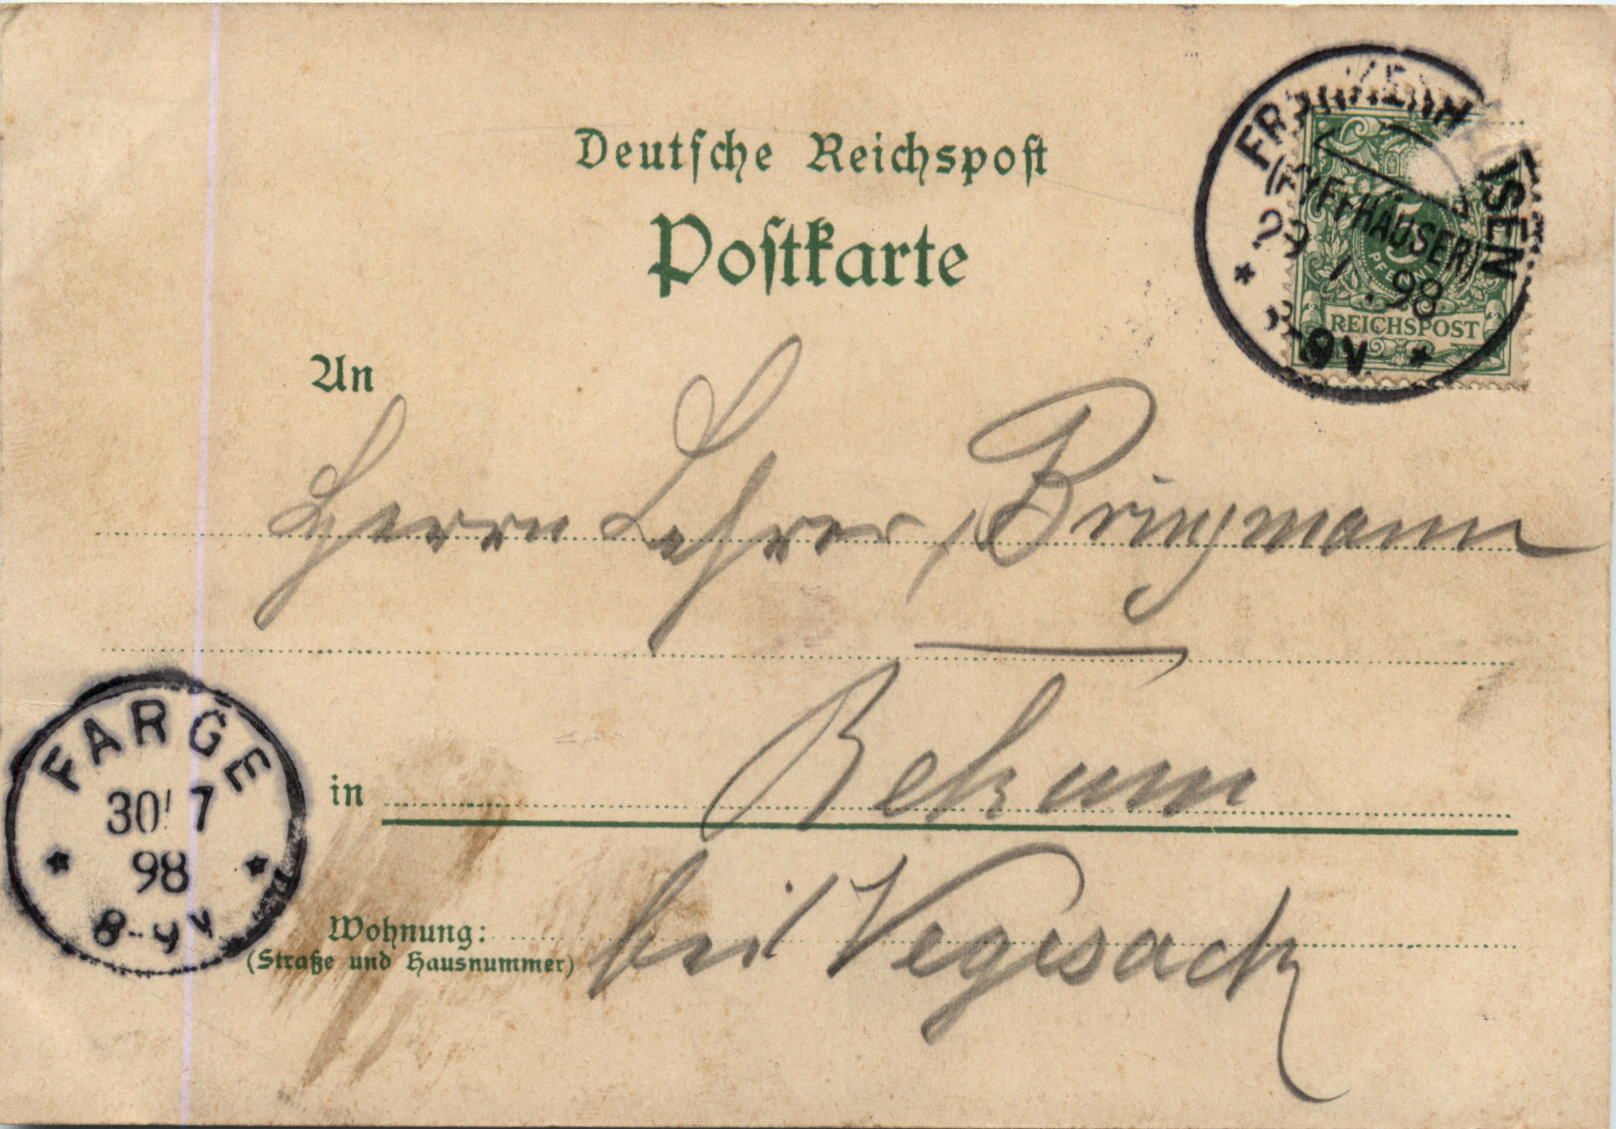 Deutsche Reichspost
Postkarte
FRANKENHAUSEN
(KYFFHÄUSER)
29 7 98
8-9V.
5
PFENNIG
REICHSPOST
An
Herrn Lehrer, Bringmann
in Rekum
Wohnung: bei Vegesack
(Straße und Hausnummer)
FARGE
30 7
98
8-9V